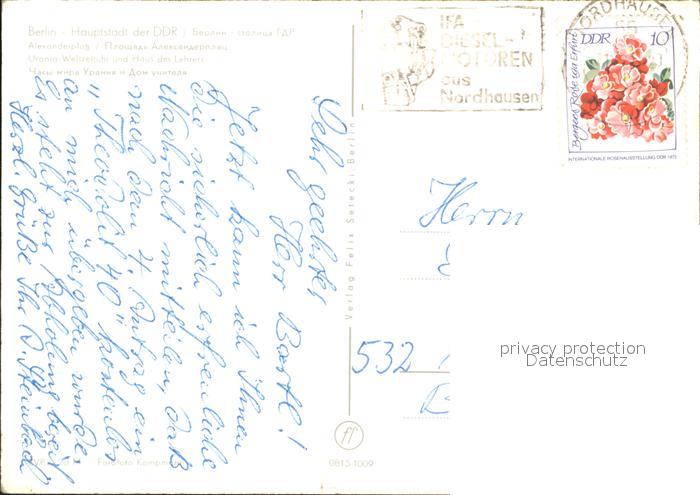 Berlin - Hauptstadt der DDR / Берлин - столица ГДР
Alexanderplatz / Площадь Александерплац
Urania-Weltzeituhr und Haus des Lehrers
Часы мира Урания и Дом учителя
Sehr geehrter
Herr Bartl!
Jetzt kann ich Ihnen
die sicherlich erfreuliche
Nachricht mitteilen, daß
nach dem 4. Antrag ein
"Theodolit 40" kostenlos
an mich übergeben wurde.
Es steht zur Abholung bereit
Herzl. Grüße Ihr
Verlag Felix Setecki Berlin
IFA
DIESEL-
MOTOREN
aus
Nordhausen
NORDHAUSEN
DDR 10
Bergers Rose von Erfurt
INTERNATIONALE ROSENAUSSTELLUNG DDR 1972
Herrn
532
privacy protection
Datenschutz
ff
0815-1009